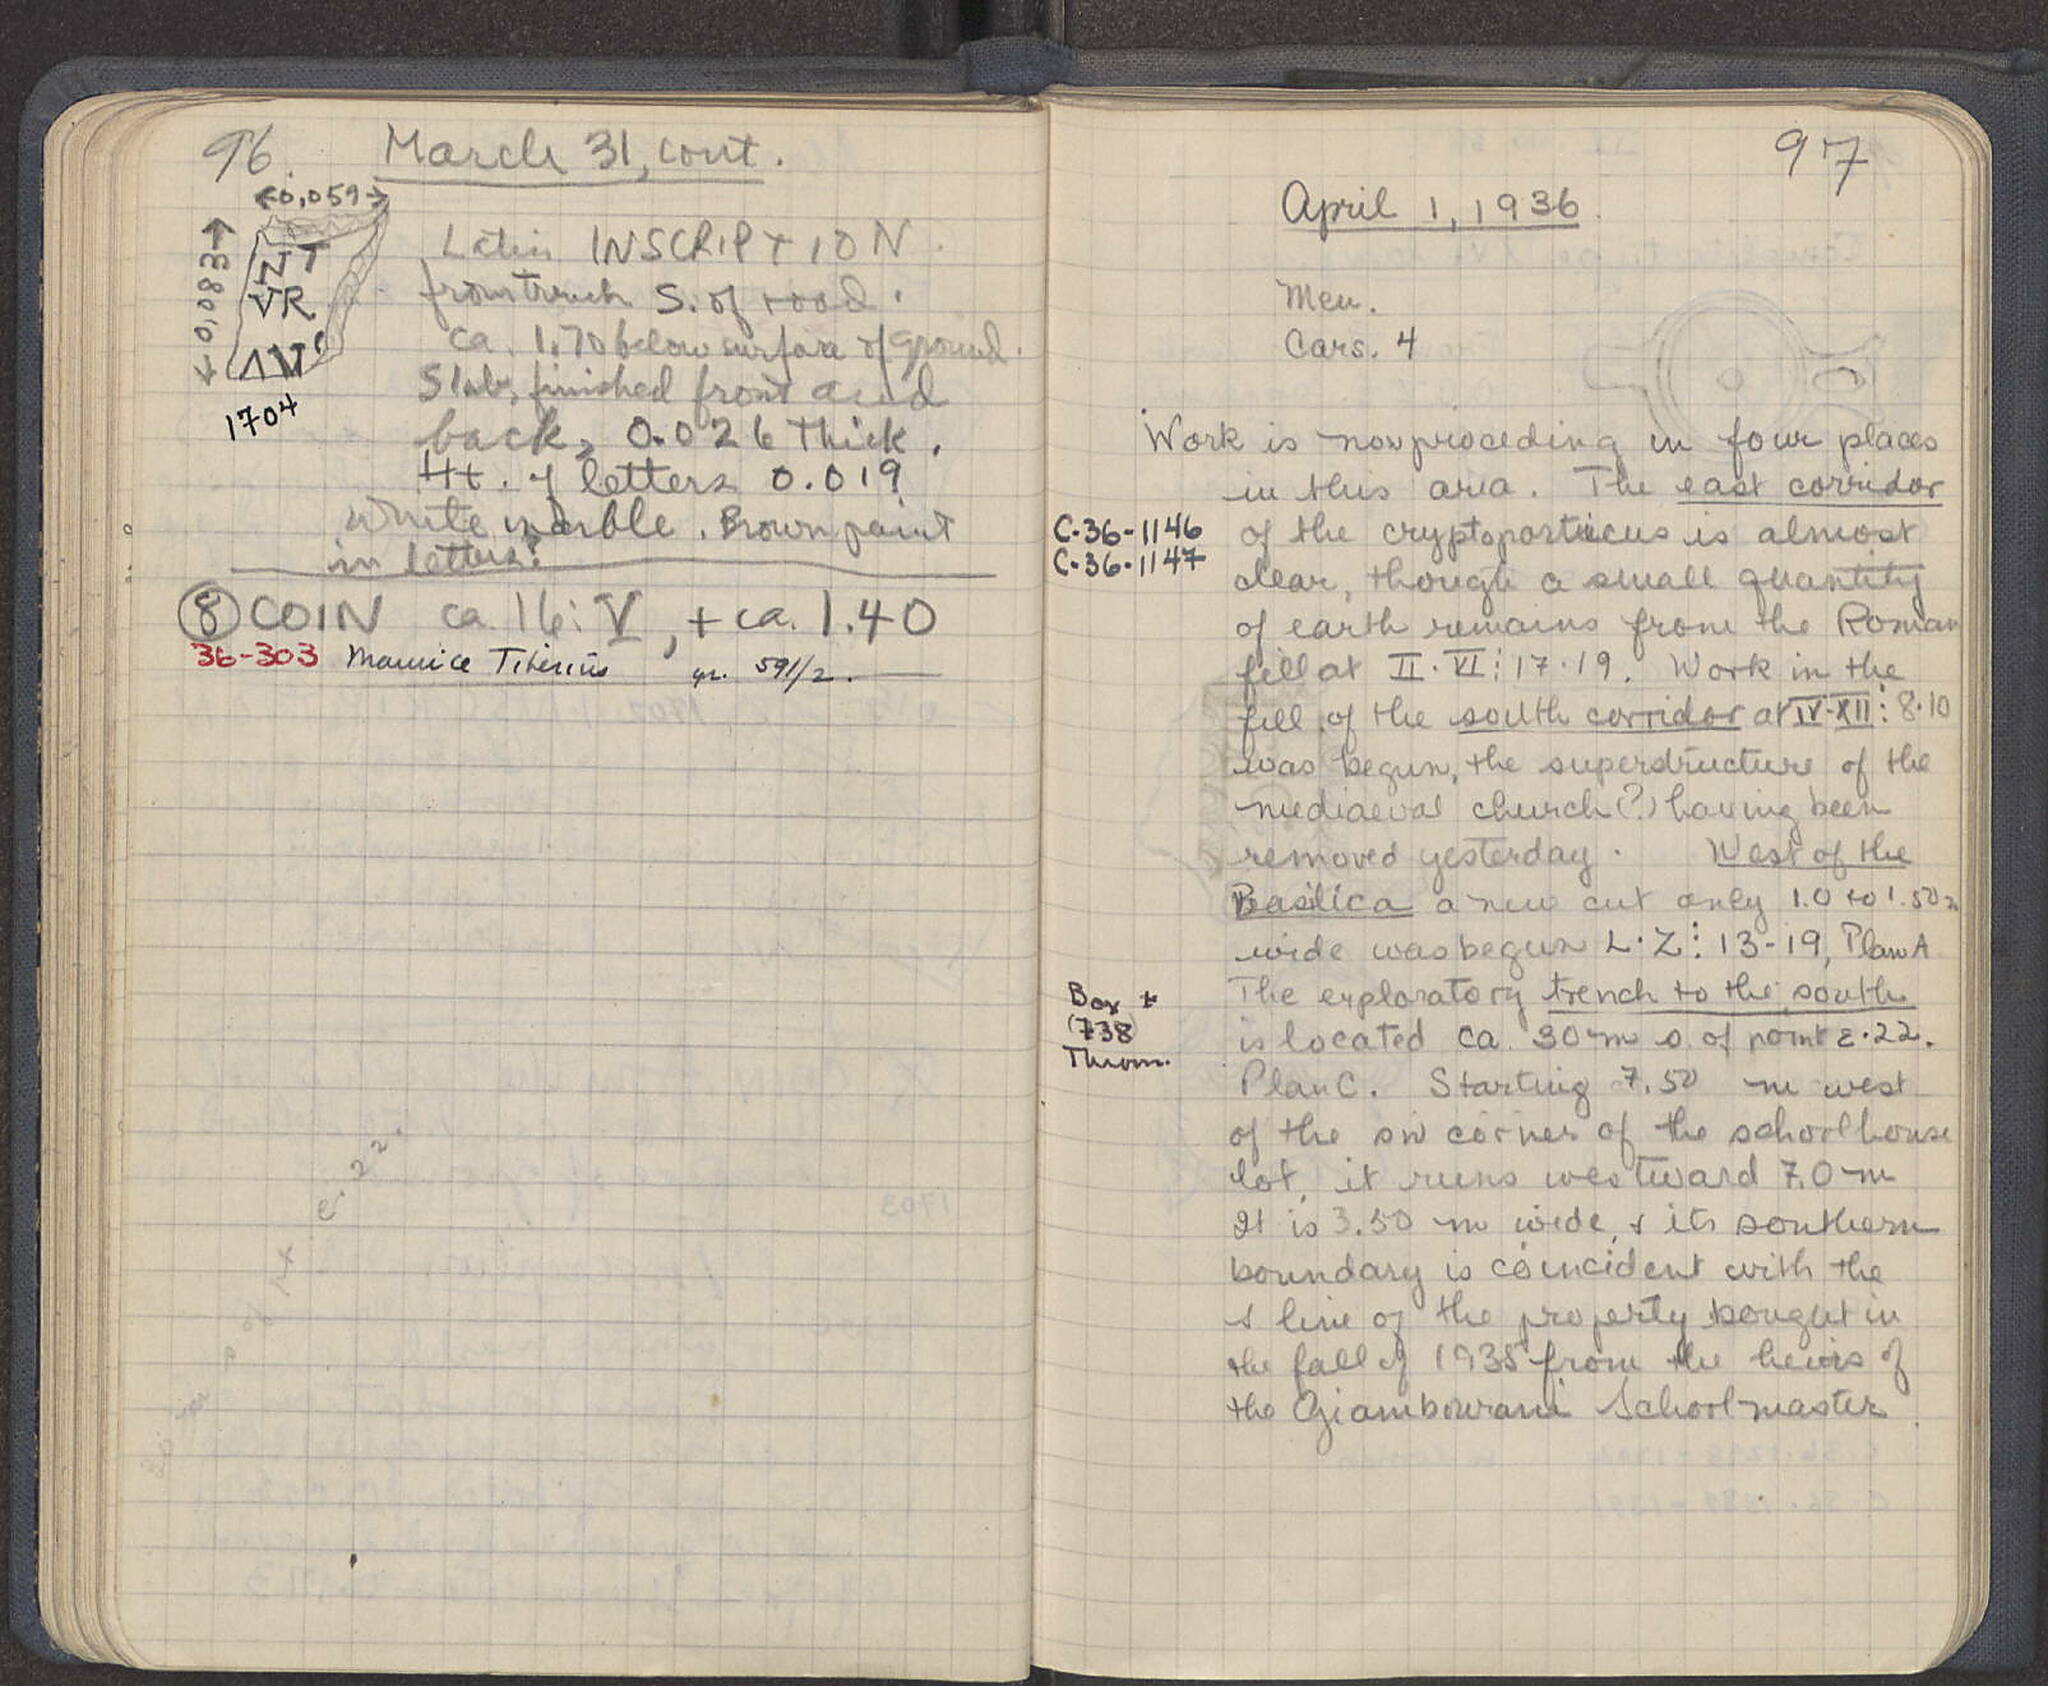 96
March 31, cont.
0,059
0,083
NT
VR
ΛV
1704
Latin INSCRIPTION.
from trench S. of road.
ca. 1.70 below surface of ground.
Slab, finished front and
back, 0.026 thick.
Ht. of letters 0.019
White marble. Brown paint
in letters.
8 COIN ca. 16:V, + ca. 1.40
36-303 Maurice Tiberius yr. 591/2.
e.22.
97
April 1, 1936.
Men.
Cars. 4
Work is now proceding in four places
in this area. The east corridor
C-36-1146 of the cryptoporticus is almost
C-36-1147 clear, though a small quantity
of earth remains from the Roman
fill at II-VI:17-19. Work in the
fill of the south corridor at IV-XII:8-10
was begun, the superstructure of the
mediaeval church (?) having been
removed yesterday. West of the
Basilica a new cut only 1.0 to 1.50 m
wide was begun L-Z:13-19, Plan A
Box + The exploratory trench to the south
(738) is located ca. 30 m s. of point ε.22.
Throm. Plan C. Starting 7.50 m west
of the sw corner of the schoolhouse
lot, it runs westward 7.0 m
It is 3.50 m wide, & its southern
boundary is coincident with the
s line of the property bought in
the fall of 1935 from the heirs of
the Giambourani Schoolmaster